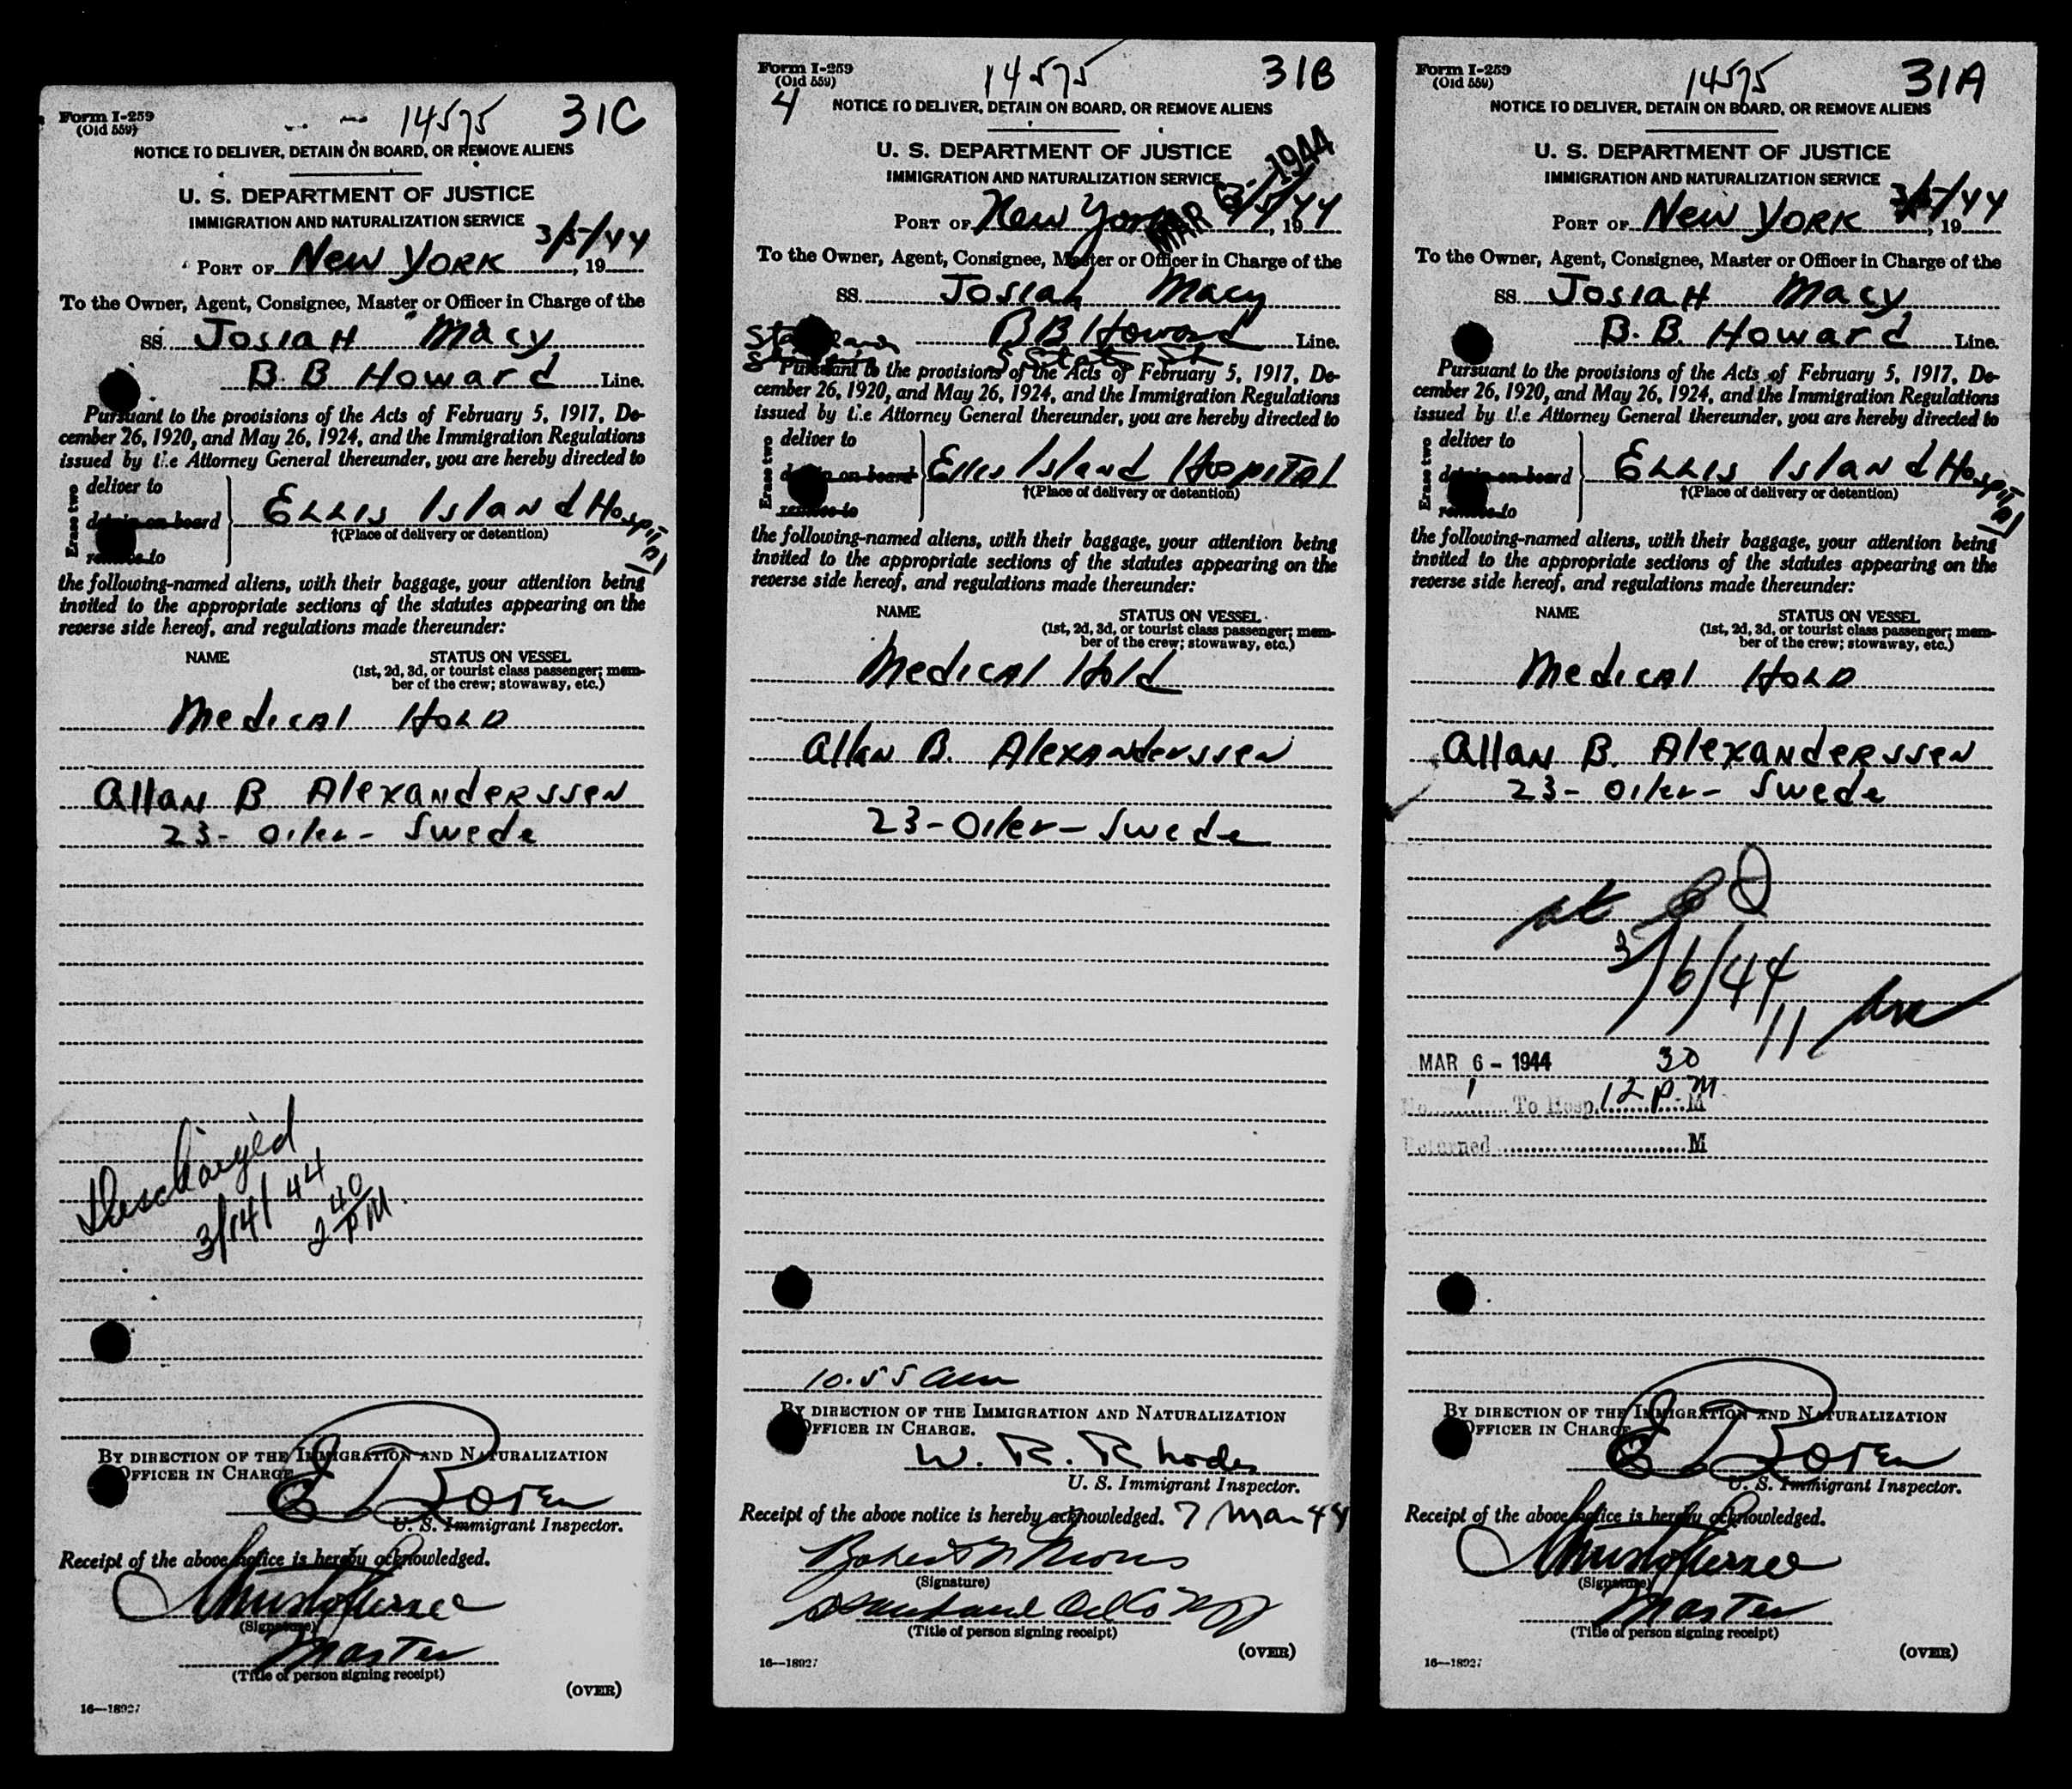 Form I-259
(Old 559)
14575
31C
NOTICE TO DELIVER, DETAIN ON BOARD, OR REMOVE ALIENS
U. S. DEPARTMENT OF JUSTICE
IMMIGRATION AND NATURALIZATION SERVICE
PORT OF New York 3/5/44, 19
To the Owner, Agent, Consignee, Master or Officer in Charge of the
SS. Josiah Macy
B. B Howard Line.
Pursuant to the provisions of the Acts of February 5, 1917, De-
cember 26, 1920, and May 26, 1924, and the Immigration Regulations
issued by the Attorney General thereunder, you are hereby directed to
Erase two
deliver to
detain on board
remove to
Ellis Island Hospital
†(Place of delivery or detention)
the following-named aliens, with their baggage, your attention being
invited to the appropriate sections of the statutes appearing on the
reverse side hereof, and regulations made thereunder:
NAME
STATUS ON VESSEL
(1st, 2d, 3d, or tourist class passenger; mem-
ber of the crew; stowaway, etc.)
Medical Hold
Allan B Alexanderssen
23 - Oiler - Swede
Discharged
3/14/44
2 40 PM.
BY DIRECTION OF THE IMMIGRATION AND NATURALIZATION
OFFICER IN CHARGE
U. S. Immigrant Inspector.
Receipt of the above notice is hereby acknowledged.
(Signature)
Master
(Title of person signing receipt)
(OVER)
16—18927
Form I-259
(Old 559)
4
14575
31B
NOTICE TO DELIVER, DETAIN ON BOARD, OR REMOVE ALIENS
U. S. DEPARTMENT OF JUSTICE
IMMIGRATION AND NATURALIZATION SERVICE
MAR 1944
PORT OF New York 44, 19
To the Owner, Agent, Consignee, Master or Officer in Charge of the
SS. Josiah Macy
B B Howard Line.
Pursuant to the provisions of the Acts of February 5, 1917, De-
cember 26, 1920, and May 26, 1924, and the Immigration Regulations
issued by the Attorney General thereunder, you are hereby directed to
Erase two
deliver to
detain on board
remove to
Ellis Island Hospital
†(Place of delivery or detention)
the following-named aliens, with their baggage, your attention being
invited to the appropriate sections of the statutes appearing on the
reverse side hereof, and regulations made thereunder:
NAME
STATUS ON VESSEL
(1st, 2d, 3d, or tourist class passenger; mem-
ber of the crew; stowaway, etc.)
Medical Hold
Allan B. Alexanderssen
23 - Oiler - Swede
10.55 am
BY DIRECTION OF THE IMMIGRATION AND NATURALIZATION
OFFICER IN CHARGE.
W. R. Rhodes
U. S. Immigrant Inspector.
Receipt of the above notice is hereby acknowledged. 7 Mar 44
(Signature)
(Title of person signing receipt)
(OVER)
16—18927
Form I-259
(Old 559)
14575
31A
NOTICE TO DELIVER, DETAIN ON BOARD, OR REMOVE ALIENS
U. S. DEPARTMENT OF JUSTICE
IMMIGRATION AND NATURALIZATION SERVICE
PORT OF New York 3/5/44, 19
To the Owner, Agent, Consignee, Master or Officer in Charge of the
SS. Josiah Macy
B. B. Howard Line.
Pursuant to the provisions of the Acts of February 5, 1917, De-
cember 26, 1920, and May 26, 1924, and the Immigration Regulations
issued by the Attorney General thereunder, you are hereby directed to
Erase two
deliver to
detain on board
remove to
Ellis Island Hospital
†(Place of delivery or detention)
the following-named aliens, with their baggage, your attention being
invited to the appropriate sections of the statutes appearing on the
reverse side hereof, and regulations made thereunder:
NAME
STATUS ON VESSEL
(1st, 2d, 3d, or tourist class passenger; mem-
ber of the crew; stowaway, etc.)
Medical Hold
Allan B. Alexanderssen
23 - Oiler - Swede
3/6/44
11
MAR 6 - 1944
No. 1 To Hosp. 12 30 P.M M
Returned M
BY DIRECTION OF THE IMMIGRATION AND NATURALIZATION
OFFICER IN CHARGE
U. S. Immigrant Inspector.
Receipt of the above notice is hereby acknowledged.
(Signature)
Master
(Title of person signing receipt)
(OVER)
16—18927